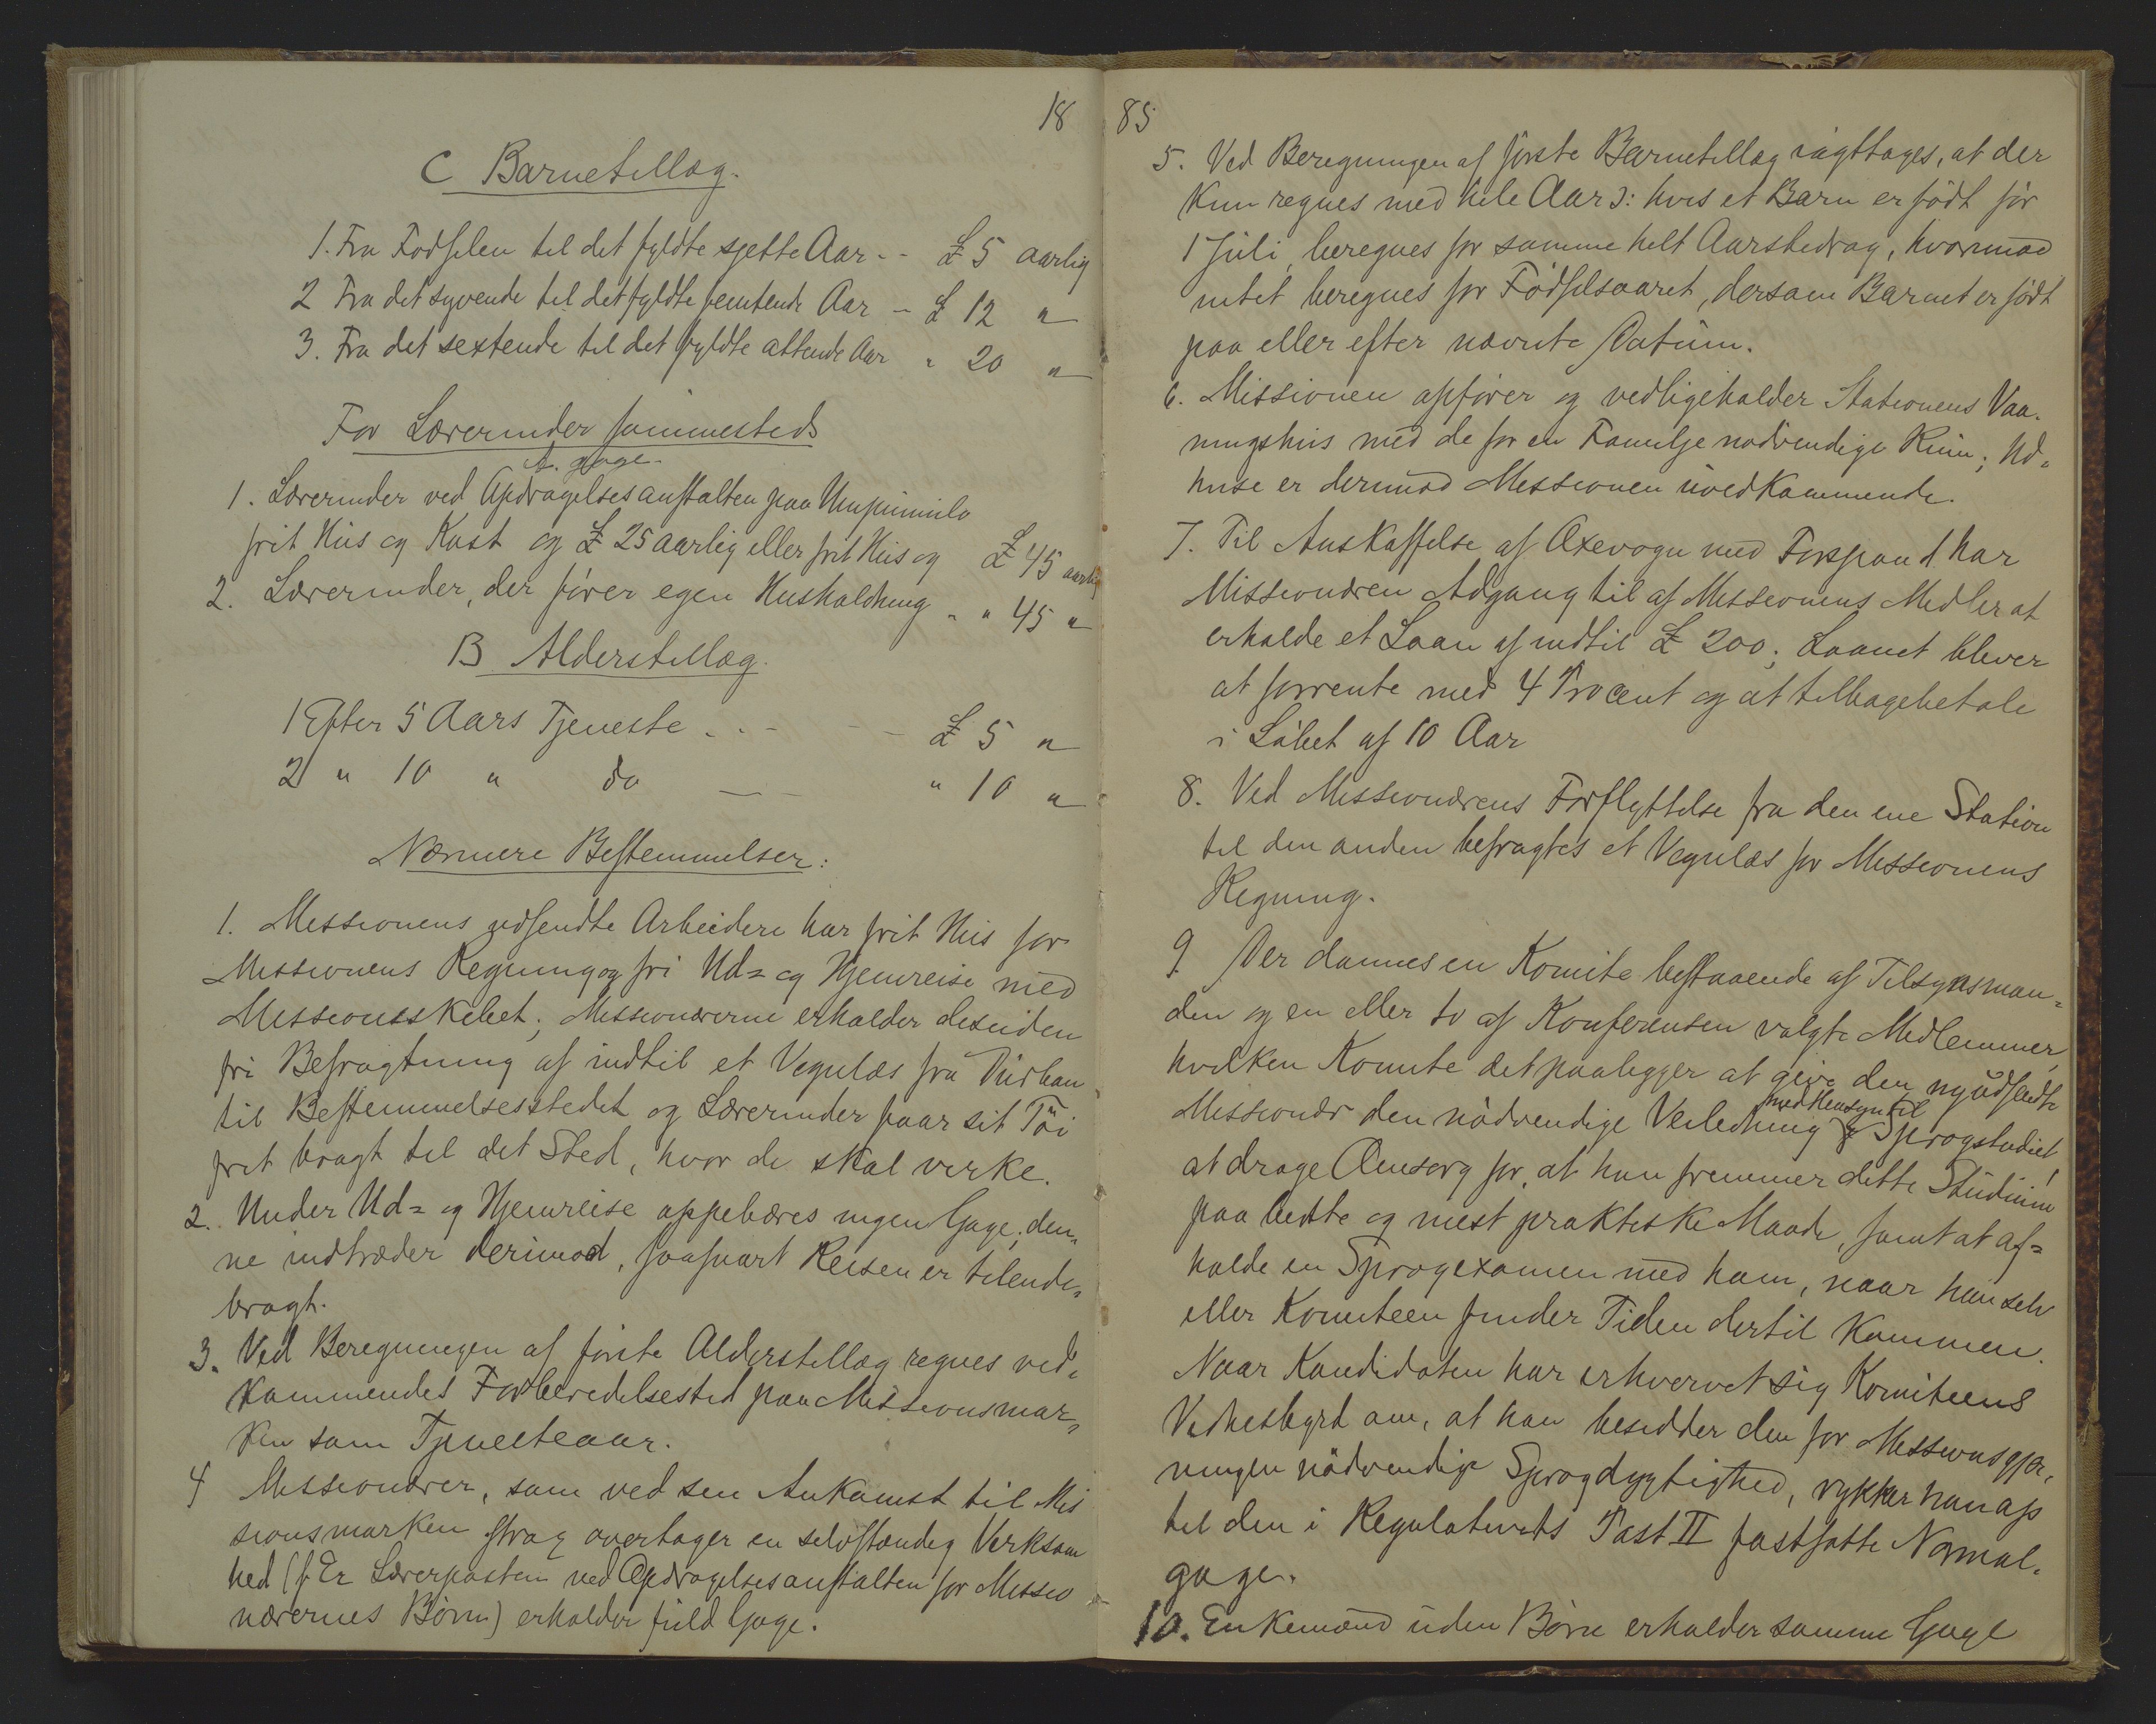 18
C Barnetillæg.
1. Fra Fødselen til det fyldte sjette Aar - - £ 5 aarlig
2 Fra det syvende til det fyldte femtende Aar - £ 12 "
3. Fra det sextende til det fyldte attende Aar " 20 "
For Lærerinder sammesteds
A. gage.
1. Lærerinder ved Opdragelsesanstalten paa Umpumulo
frit Hus og Kost og £ 25 aarlig eller frit Hus og £ 45 aarlig
2. Lærerinder, der fører egen Husholdning - " 45 "
B Alderstillæg.
1 Efter 5 Aars Tjeneste - - - £ 5 "
2 " 10 " do - - " 10 "
Nærmere Bestemmelser:
1. Missionens udsendte Arbeidere har frit Hus for
Missionens Regning og fri Ud= og Hjemreise med
Missionsskibet; Missionærerne erholder desuden
fri Befragtning af indtil et Vognlæs fra Durban
til Bestemmelsesstedet og Lærerinder faar sit Töi
frit bragt til det Sted, hvor de skal virke.
2. Under Ud= og Hjemreise oppebæres ingen Gage; den=
ne indtræder derimod, saasnart Reisen er tilende=
bragt.
3. Ved Beregningen af første Alderstillæg regnes ved=
kommendes Forberedelsestid paa Missionsmar=
ken som Tjenesteaar.
4 Missionærer, som ved sin Ankomst til Mis
sionsmarken strax overtager en selvstændig Virksom
hed (f. Ex Lærerposten ved Opdragelsesanstalten for Missio
nærernes Børn) erholder fuld Gage.
85
5. Ved Beregningen af første Barnetillæg iagttages, at der
kun regnes med hele Aar ɔ: hvis et Barn er født før
1 Juli, beregnes for samme helt Aarsbidrag, hvorimod
intet beregnes for Fødselsaaret, dersom Barnet er født
paa eller efter nævnte Datum.
6. Missionen opfører og vedligeholder Stationens Vaa=
ningshus med de for en Familje nødvendige Rum; Ud=
huse er derimod Missionen uvedkommende.
7. Til Anskaffelse af Oxevogn med Forspand har
Missionæren Adgang til af Missionens Midler at
erholde et Laan af indtil £ 200; Laanet bliver
at forrente med 4 Procent og at tilbagebetale
i Løbet af 10 Aar
8. Ved Missionærens Forflyttelse fra den ene Station
til den anden befragtes et Vognlæs for Missionens
Regning.
9. Der dannes en Komite bestaaende af Tilsynsman=
den og en eller to af Konferensen valgte Medlemmer,
hvilken Komite det paaligger at give den nyudsendte
med Hensyn til
Missionær den nödvendige Veiledning Sprogstudiet,
at drage Omsorg for, at han fremmer dette Studium
paa bedste og mest praktiske Maade, samt at af=
holde en Sprogexamen med ham, naar han selv
eller Komiteen finder Tiden dertil kommen.
Naar Kandidaten har erhvervet sig Komiteens
Vidnesbyrd om, at han besidder den for Missionsgjer=
ningen nödvendige Sprogdygtighed, rykker han op
til den i Regulativets Post II fastsatte Normal=
gage.
10. Enkemænd uden Børn erholder samme Gage